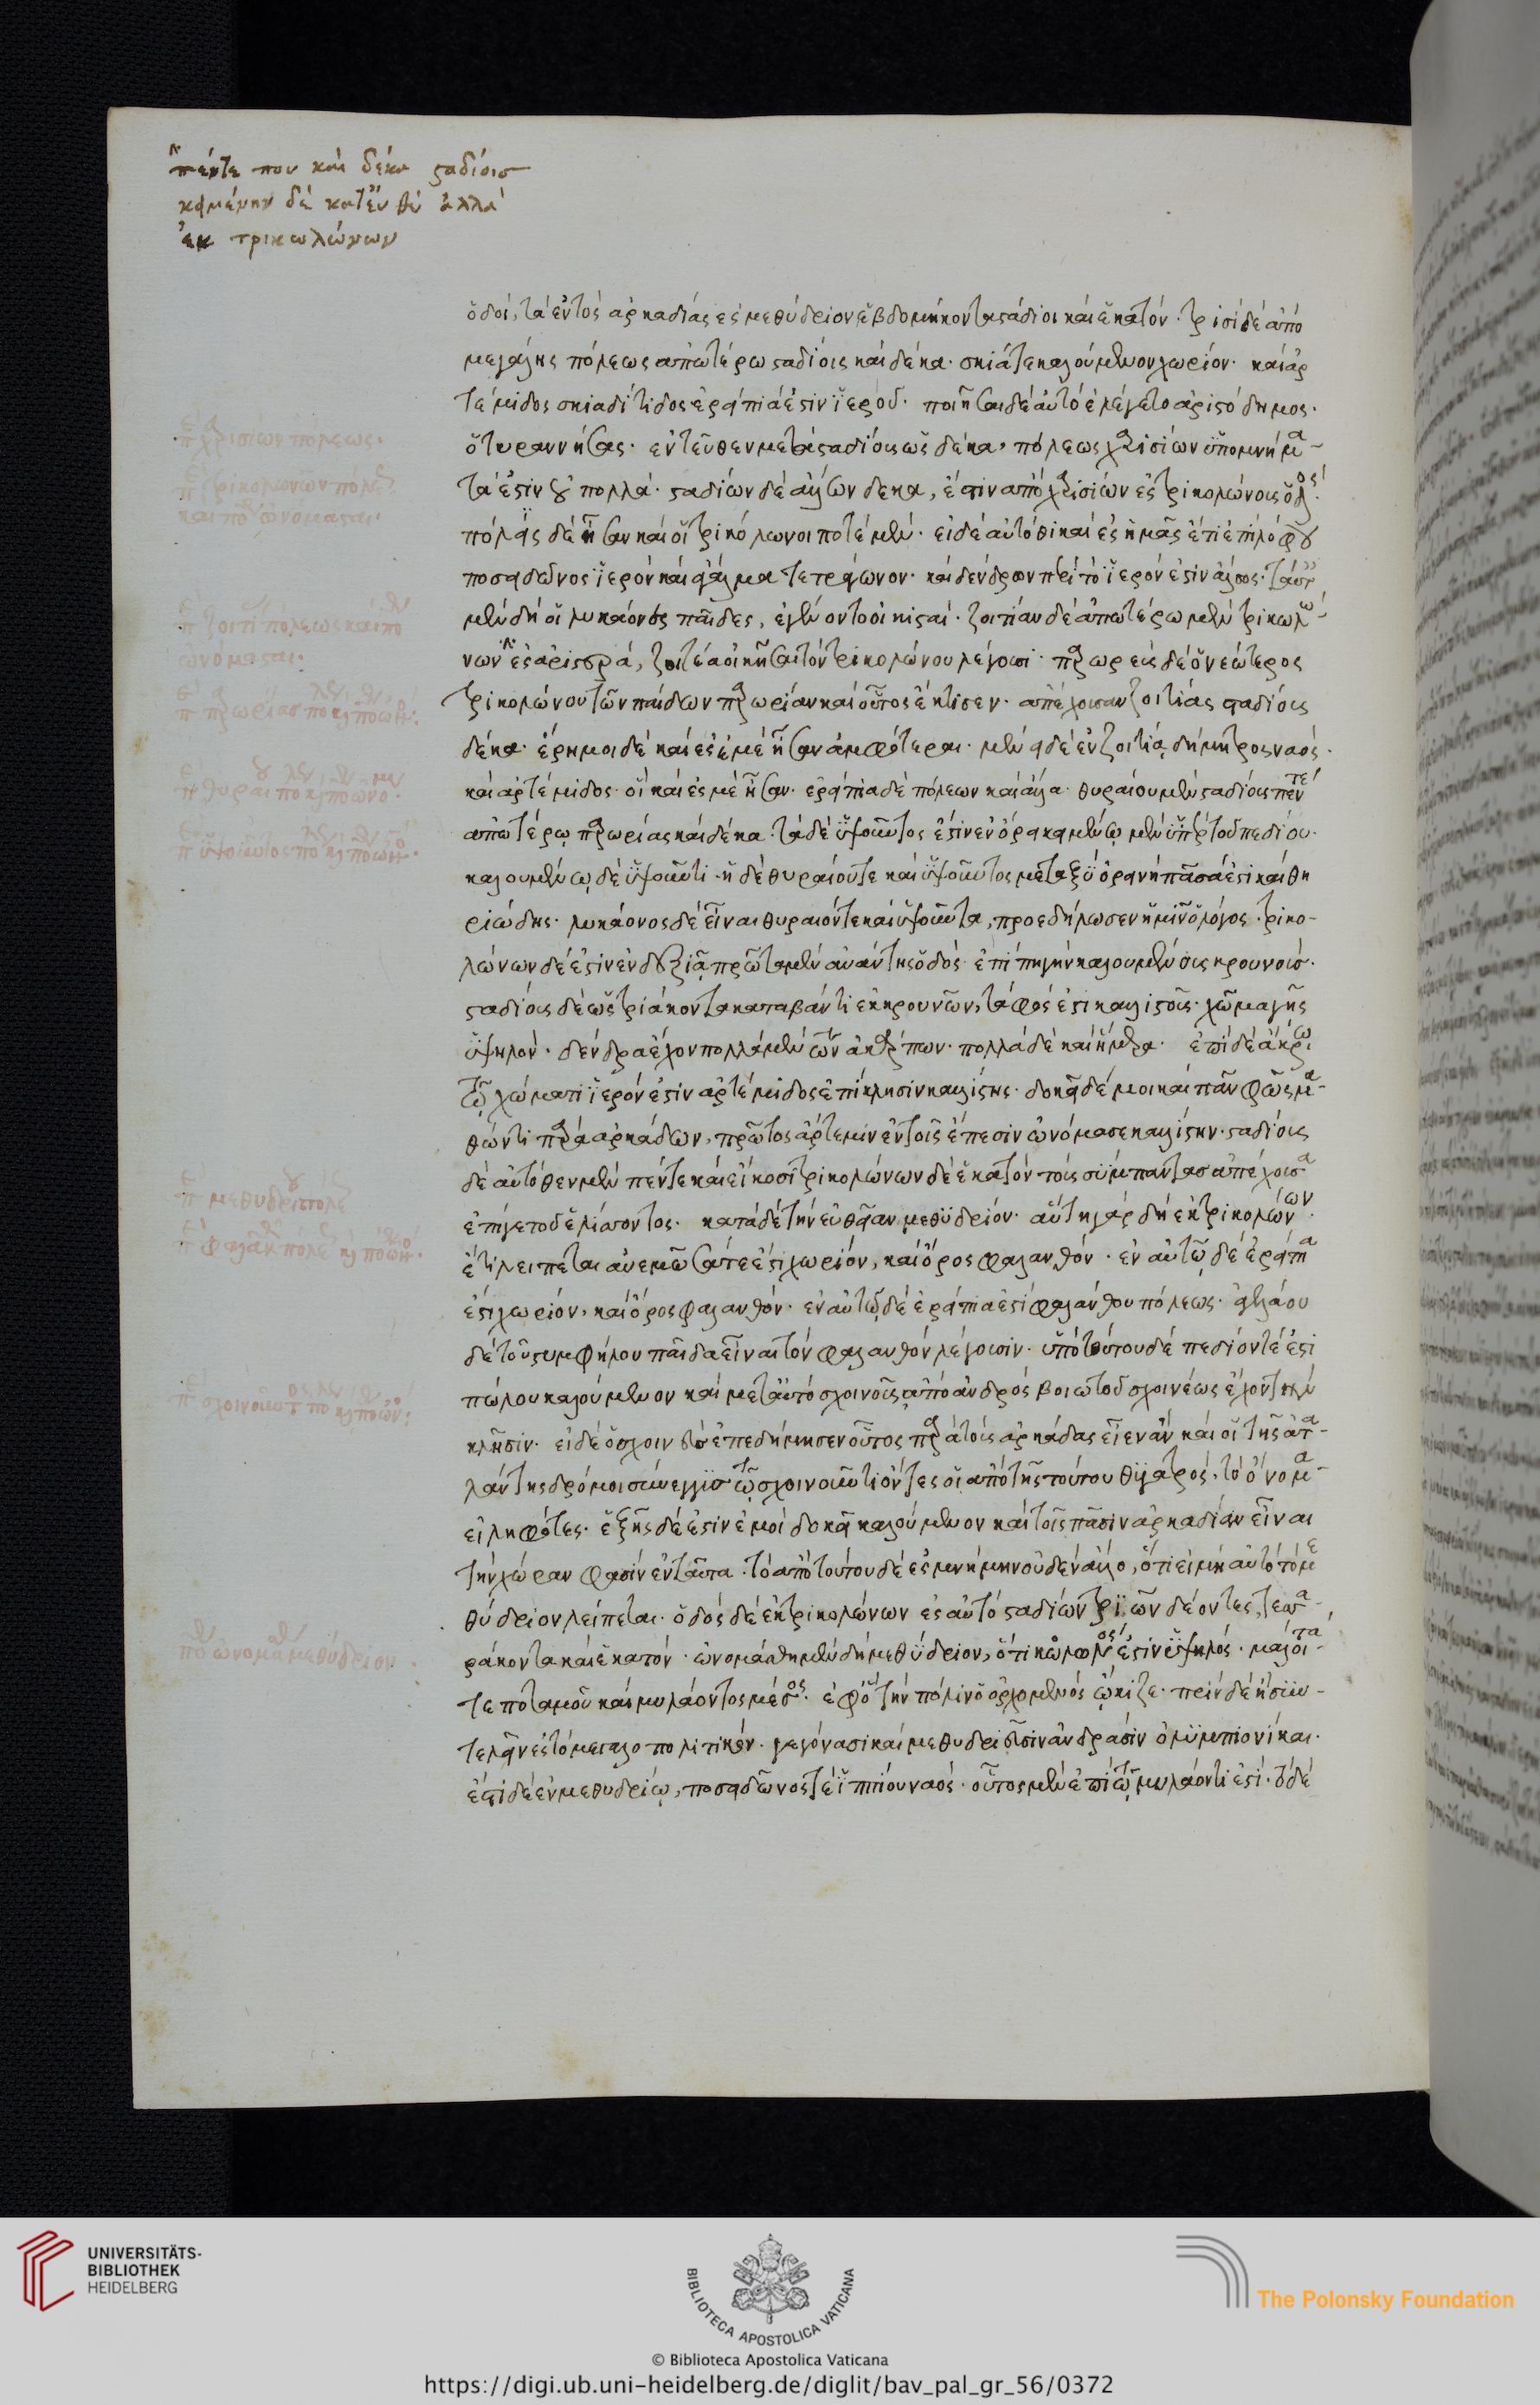 πέντε που καὶ δέκα σταδίοισ
κειμένην δὲ κατευθὺ ἀλλὰ
ἐκ τρικωλώνων
ὁδοὶ, τὰ ἐντὸς ἀρκαδίας ἐς μεθύδριον ἑβδομήκοντα στάδιοι καὶ ἑκατόν· τρισὶ δὲ ἀπὸ
μεγάλης πόλεως ἀπωτέρω σταδίοις καὶ δέκα· σκιά τε καλούμενον χωρίον· καὶ ἀρ
τέμιδος σκιαδίτιδος ἐρείπιά ἐστιν ἱεροῦ· ποιῆσαι δὲ αὐτὸ ἐλέγετο ἀριστόδημος·
ὁ τυραννήσας· ἐντεῦθεν μετὰ σταδίους ὡς δέκα, πόλεως χαρισίων ὑπομνήμα-
τά ἐστιν οὐ πολλά· σταδίων δὲ ἄλλων δεκα, ἔστιν ἀπὸ χαρισίων ἐς τρικολώνους ὁδός·
πόλεις δὲ ἦσαν καὶ οἱ τρικόλωνοι ποτὲ μὲν· εἰ δὲ αὐτόθι καὶ ἐς ἡμᾶς ἔτι ἐπὶ λόφου
ποσειδῶνος ἱερὸν καὶ ἄγαλμα τετράγωνον· καὶ δένδρων περὶ τὸ ἱερόν ἐστιν ἄλσος· ταύταις
μὲν δὴ οἱ λυκάονος παῖδες, ἐγένοντο οἰκισταί· ζοιτίαν δὲ ἀπωτέρω μὲν τρικωλώ-
νων ἐς ἀριστερὰ, ζοιτέα οἰκῆσαι τὸν τρικολώνου λέγουσι· παρωρεὺς δὲ ὁ νεώτερος
τρικολώνου τῶν παίδων παρωρίαν καὶ οὗτος ἔκτισεν· ἀπέχουσαν ζοιτίας σταδίους
δέκα· ἔρημοι δὲ καὶ ἐς ἐμὲ ἦσαν ἀμφότεραι· μένει δὲ ἐν ζοιτίᾳ δήμητρος ναὸς·
καὶ ἀρτέμιδος· οἳ καὶ ἐς μὲ ἦσαν· ἐρείπια δὲ πόλεων καὶ ἄλλα· θυραίου μὲν σταδίους πέντε
ἀπωτέρω παρωρίας καὶ δέκα· τὰ δὲ ὑψοῦντος ἐστὶν ἐν ὄρει κειμένῳ μὲν ὑπὲρ τοῦ πεδίου·
καλουμένῳ δὲ ὑψοῦντι· ἡ δὲ θυραίου τε καὶ ὑψοῦντος μεταξὺ ὀρεινὴ πᾶσά ἐστι καὶ θη
ριώδης· λυκάονος δὲ εἶναι θυραιόν τε καὶ ὑψοῦντα, προεδήλωσεν ἡμῖν ὁ λόγος· τρικο-
λώνων δέ ἐστιν ἐν δεξιᾷ πρῶτα μὲν ἀνάντης ὁδὸς ἐπὶ πηγὴν καλουμένους κρουνούς·
σταδίους δὲ ὡς τριάκοντα καταβάντι ἐκ κρουνῶν, τάφος ἐστὶ καλλιστοῦς· χῶμα γῆς
ὑψηλόν· δένδρα ἔχον πολλὰ μὲν τῶν ἀκάρπων· πολλὰ δὲ καὶ ἥμερα· ἐπὶ δὲ ἄκρῳ
τῷ χώματι ἱερόν ἐστιν ἀρτέμιδος ἐπίκλησιν καλλίστης· δοκεῖ δέ μοι καὶ πᾶν φῶς μα-
θὼν τι παρὰ ἀρκάδων, πρῶτος ἄρτεμιν ἐν τοῖς ἔπεσιν ὠνόμασε καλλίστην· σταδίους
δὲ αὐτόθεν μὲν πέντε καὶ εἴκοσι τρικολώνων δὲ ἑκατὸν τοὺς σύμπαντασ ἀπέχουσα
ἐπήγετο δ ἑλίσσοντος· κατὰ δὲ τὴν εὐθεῖαν μεθύδριόν· αὕτη γὰρ δὴ ἐκ τρικολώνων·
ἔτι λείπεται ἀνεμῶσά τέ ἐστι χωρίον, καὶ ὄρος φάλανθόν· ἐν αὐτῷ δὲ ἐρείπιά
ἐστι χωρίον, καὶ ὄρος φάλανθόν· ἐν αὐτῷ δὲ ἐρείπια ἐστὶ φαλάνθου πόλεως· ἀγελάου
δὲ τοῦ στυμφήλου παῖδα εἶναι τὸν φάλανθόν λέγουσιν· ὑπὸ τούτου δὲ πεδίον τέ ἐστι
πώλου καλούμενον καὶ μετ' αὐτὸ σχοινοῦς ἀπὸ ἀνδρὸς βοιωτοῦ σχοινέως ἔχον τὴν
κλῆσιν· εἰ δὲ ὁ σχοινεὺς ἐπεδήμησεν οὗτος παρὰ τοὺς ἀρκάδας εἶεν ἂν καὶ οἱ τῆς ἀτα-
λάντης δρόμοι σύνεγγυσ τῷ σχοινοῦντι ὄντες οἱ ἀπὸ τῆς τούτου θυγατρὸς, τὸ ὄνομα-
εἰληφότες· ἑξῆς δέ ἐστιν ἐμοὶ δοκεῖ καλούμενον καὶ τοῖς πᾶσιν ἀρκαδίαν εἶναι
τὴν χώραν φασὶν ἐνταῦτα· τὸ ἀπὸ τούτου δὲ ἐς μνήμην οὐδὲν ἄλλο, ὅτι εἰ μὴ αὐτὸ τὸ με
θύδριον λείπεται· ὁδὸς δὲ ἐκ τρικολώνων ἐς αὐτὸ σταδίων τριῶν δέοντες, τεσσα-
ράκοντα καὶ ἑκατόν· ὠνομάσθη μὲν δὴ μεθύδριον, ὅτι κολωνός ἐστιν ὑψηλὸς· μαλοίτα-
τε ποταμοῦ καὶ μυλάοντος μέσος· ἐφ' ὃ τὴν πόλιν ὁ ὀρχομενὸς ᾤκιζε· πρὶν δὲ ἢ συν-
τελεῖν ἐς τὸ μεγαλοπολιτικόν· γεγόνασι καὶ μεθυδριεῦσιν ἀνδράσιν ὀλυμπιονίκαι·
ἔστι δὲ ἐν μεθυδρίῳ, ποσειδῶνός τε ἱππίου ναὸς· οὗτος μὲν ἐπὶ τῷ μυλάοντί ἐστι· τὸ δὲ
UNIVERSITÄTS-
BIBLIOTHEK
HEIDELBERG
BIBLIOTECA APOSTOLICA VATICANA
The Polonsky Foundation
© Biblioteca Apostolica Vaticana
https://digi.ub.uni-heidelberg.de/diglit/bav_pal_gr_56/0372